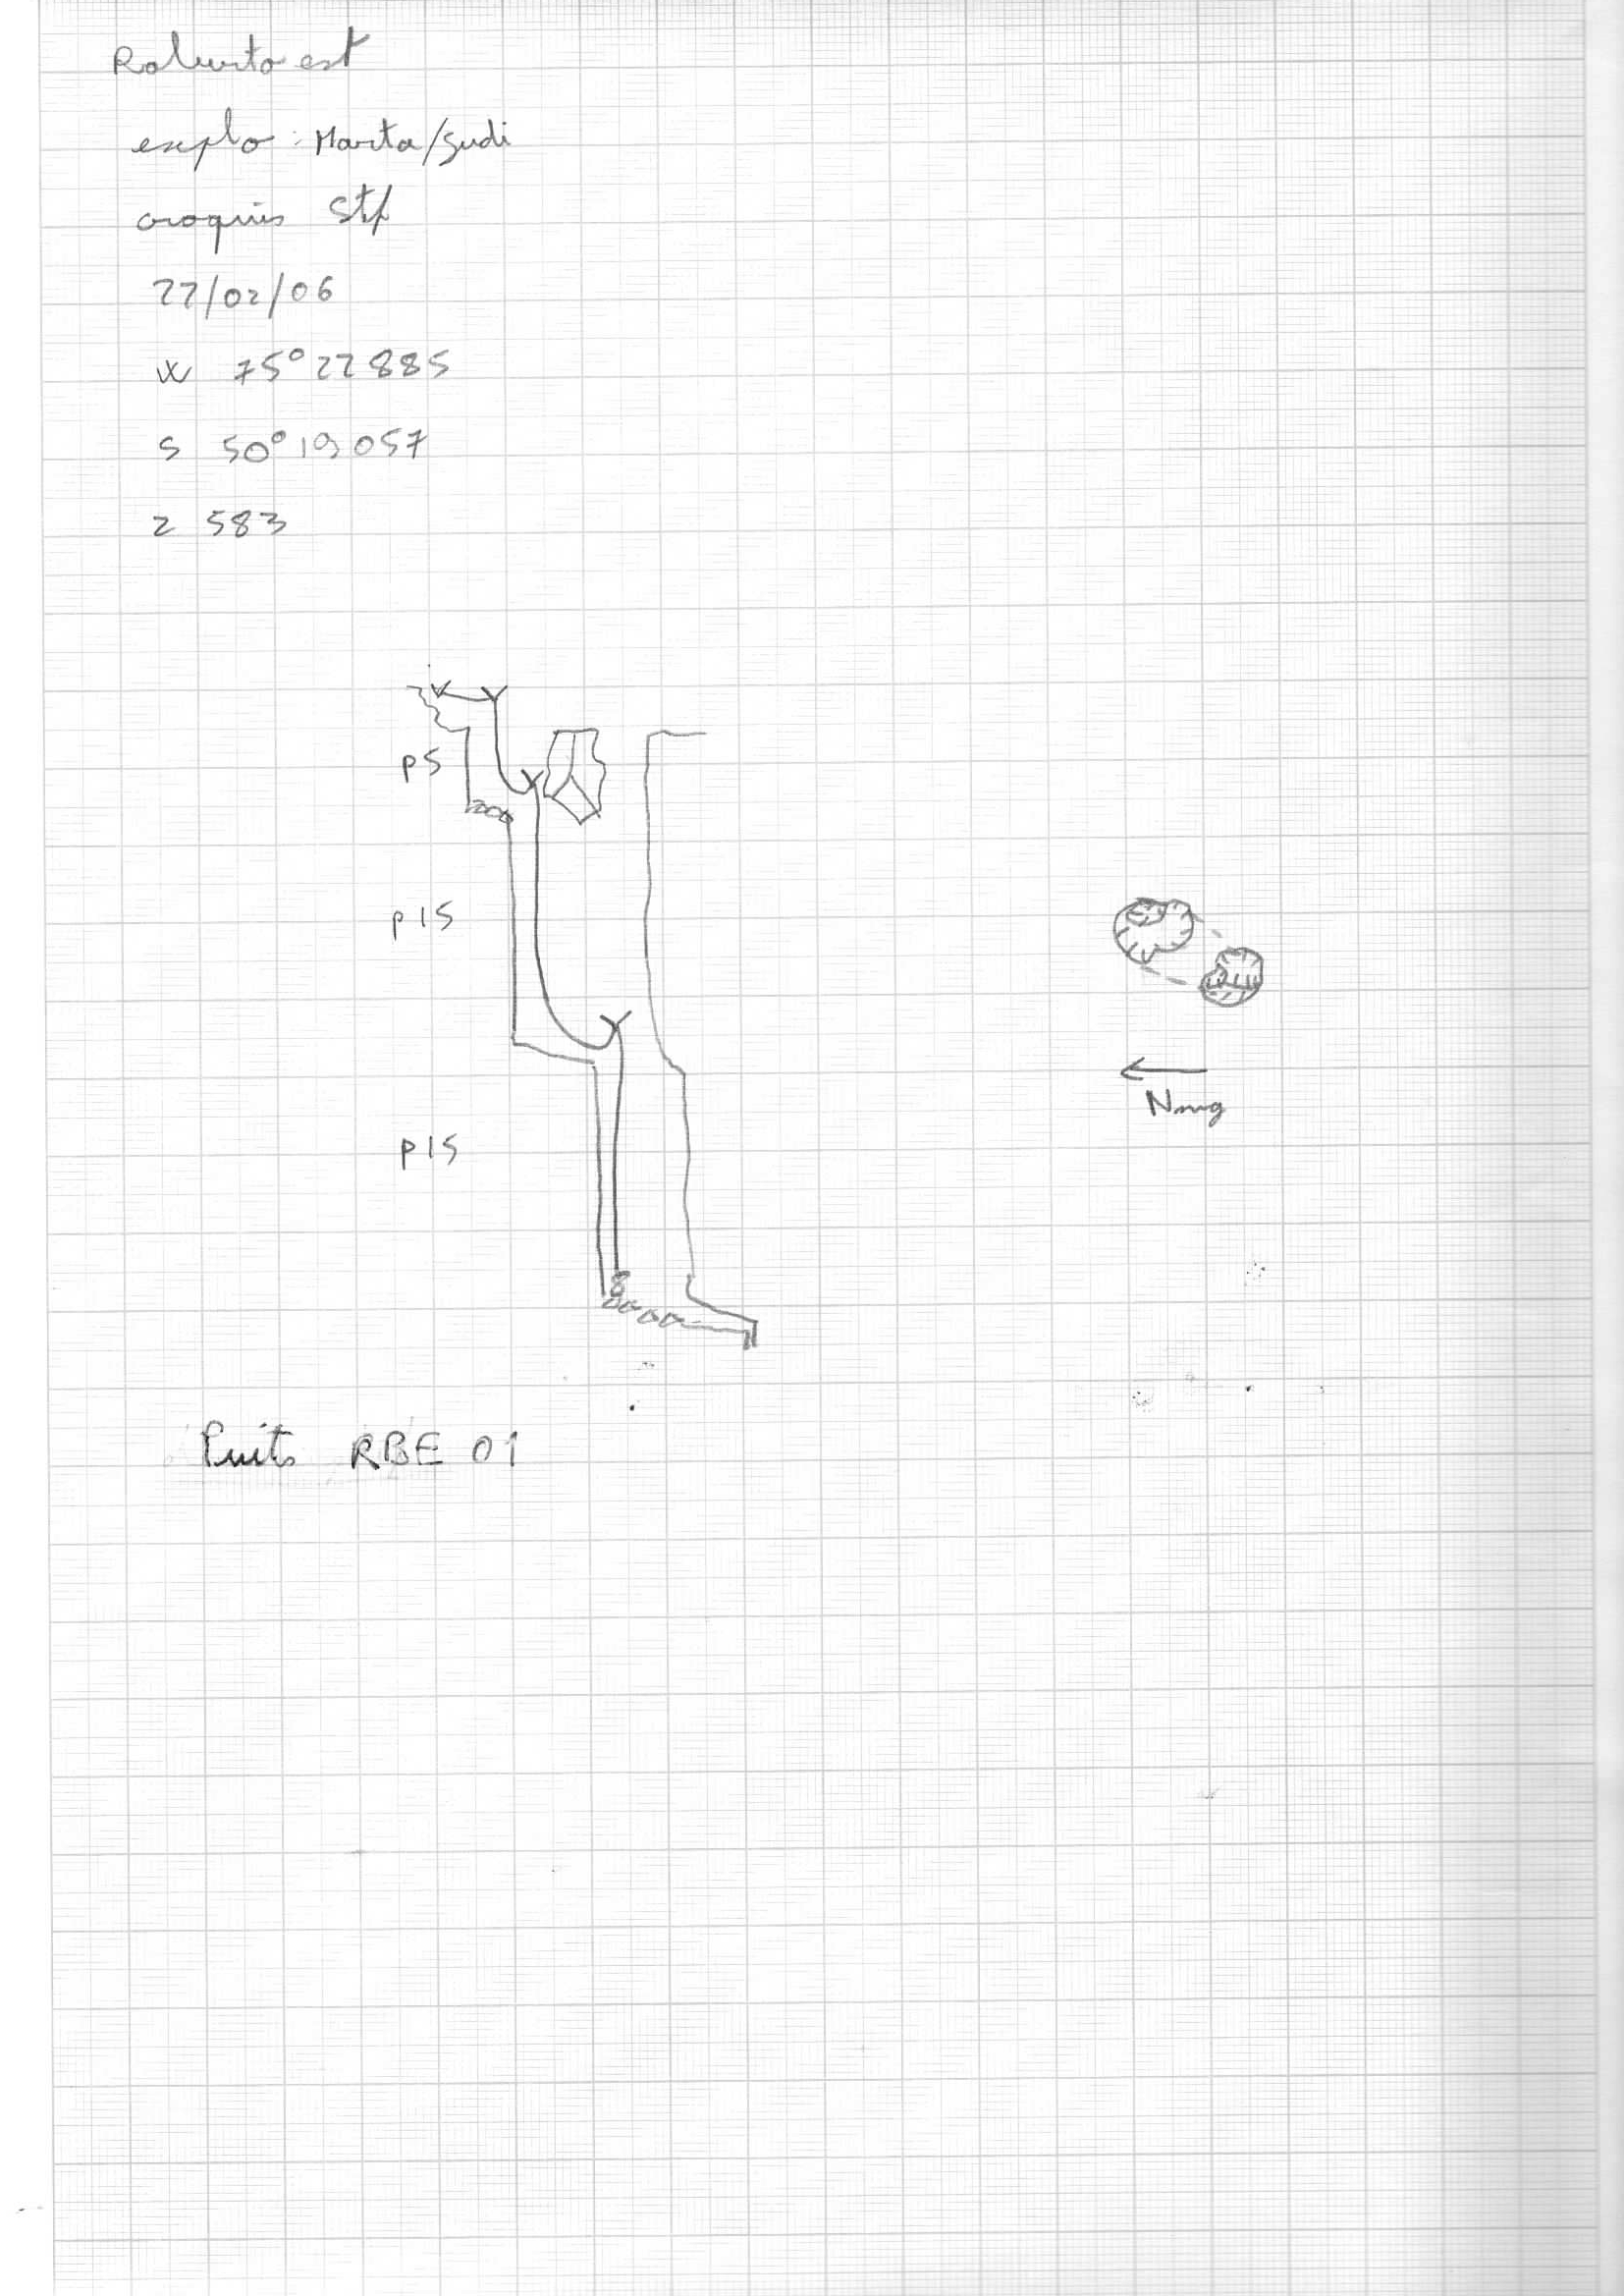 Roberto est
explo : Marta/Judi
croquis Stf
22/02/06
W 75°22885
S 50°19057
z 583
p5
p15
p15
Nmg
Puits RBE 01